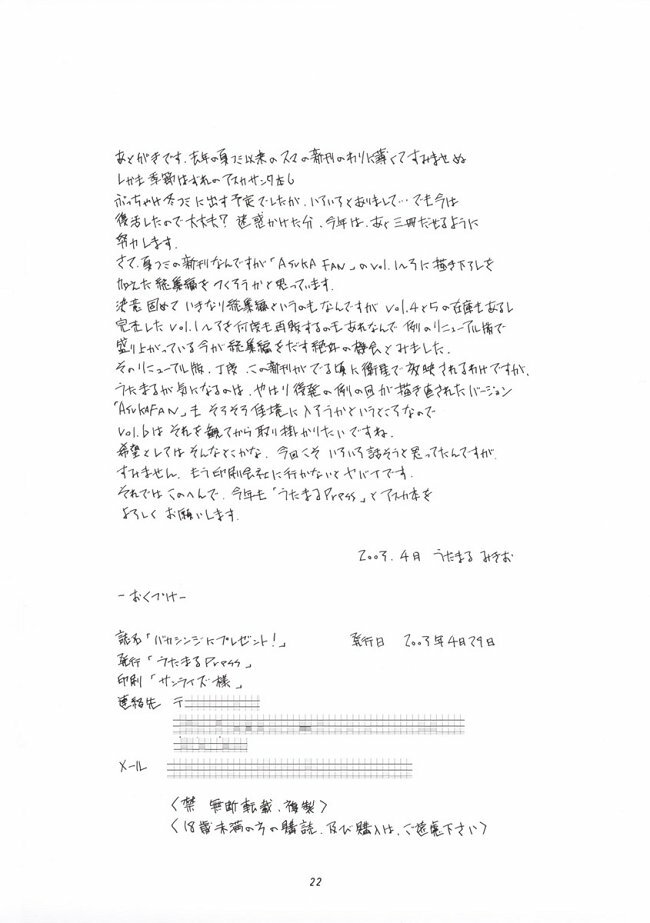 あとがきです。去年の夏コミ以来のスマの新刊のわりに薄くてすみませぬ
しかも季節はずれのアスカサンタ本し
ぶっちゃけ冬コミに出す予定でしたが、いろいろとありまして…でも今は
復活したので大丈夫? 迷惑かけた分、今年は、あと三冊だせるように
努力します。
さて、夏コミの新刊なんですが「ASUKA FAN」のvol.1～3に描き下ろしを
加えた総集編をつくろうかと思っています。
決意固めて いきなり総集編というのもなんですが vol.4と5の在庫もあるし
完売した vol.1～3を何度も再販するのもあれなんで 例のリニューアル版で
盛り上がっている今が総集編をだす絶好の機会とみました。
そのリニューアル版、丁度、この新刊がでる頃に衛星で放映されるわけですが、
うたまるが気になるのは、やはり後発の例の回が描き直されたバージョン
「ASUKAFAN」も そろそろ佳境に入ろうかというところなので
vol.6は それを観てから取り掛かりたいですね。
希望としてはそんなとこかな、今回こそ いろいろ話そうと思ってたんですが、
すみません、もう印刷会社に行かないとヤバイです。
それではこのへんで、今年も「うたまるPress」とアスカ本を
よろしく お願いします。
2003.4月 うたまる みきお
－おくづけ－
誌名「バカシンジにプレゼント!」 発行日 2003年4月29日
発行「うたまるPress」
印刷「サンライズ様」
連絡先 〒
メール
〈禁 無断転載、複製〉
〈18歳未満の方の購読、及び購入は、ご遠慮下さい〉
22